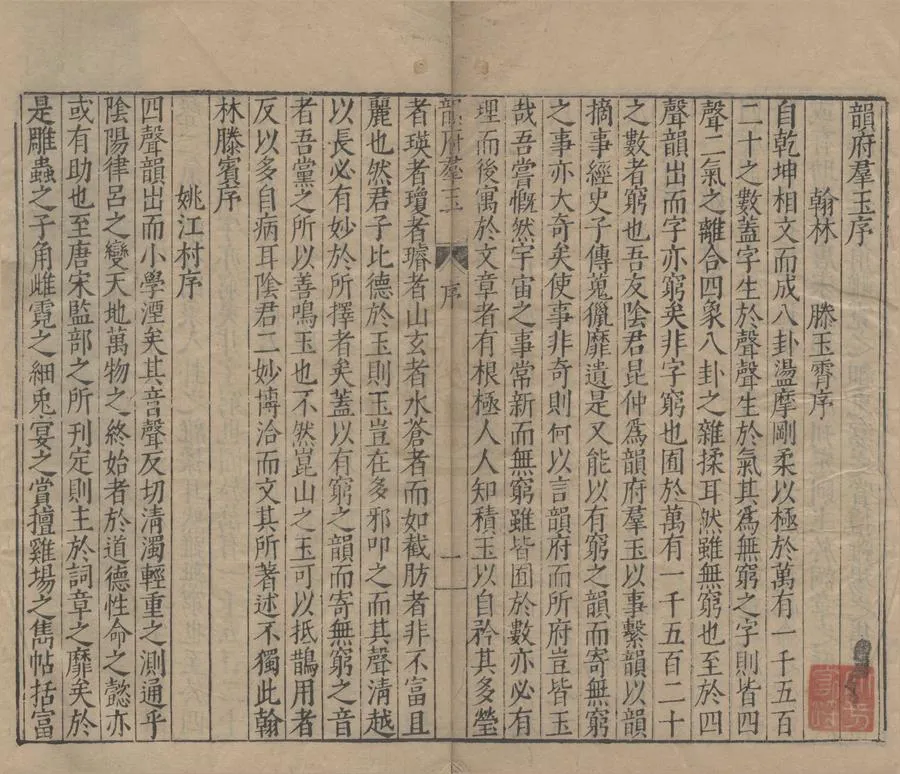 韻府羣玉序
翰林 滕玉霄序
自乾坤相文而成八卦盪摩剛柔以極於萬有一千五百
二十之數蓋字生於聲聲生於氣其爲無窮之字則皆四
聲二氣之離合四象八卦之雜揉耳然雖無窮也至於四
聲韻出而字亦窮矣非字窮也囿於萬有一千五百二十
之數者窮也吾友陰君昆仲爲韻府羣玉以事繫韻以韻
摘事經史子傳蒐獵靡遺是又能以有窮之韻而寄無窮
之事亦大奇矣使事非奇則何以言韻府而所府豈皆玉
哉吾嘗慨然宇宙之事常新而無窮雖皆囿於數亦必有
理而後寓於文章者有根極人人知積玉以自矜其多瑩
韻府羣玉 序 一
者瑛者瓊者璿者山玄者水蒼者而如截肪者非不富且
麗也然君子比德於玉則玉豈在多邪叩之而其聲清越
以長必有妙於所擇者矣蓋以有窮之韻而寄無窮之音
者吾黨之所以善鳴玉也不然崑山之玉可以抵鵲用者
反以多自病耳陰君二妙博洽而文其所著述不獨此翰
林滕賓序
姚江村序
四聲韻出而小學湮矣其音聲反切清濁輕重之測通乎
陰陽律呂之變天地萬物之終始者於道德性命之懿亦
或有助也至唐宋監部之所刊定則主於詞章之靡矣於
是雕蟲之子角雌霓之細兎宴之賞擅雞場之雋帖括富